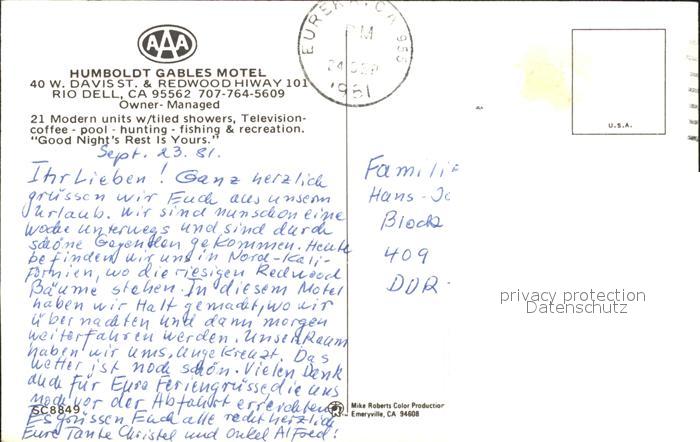 AAA
HUMBOLDT GABLES MOTEL
40 W. DAVIS ST. & REDWOOD HIWAY 101
RIO DELL, CA 95562 707-764-5609
Owner-Managed
21 Modern units w/tiled showers, Television-
coffee - pool - hunting - fishing & recreation.
"Good Night's Rest Is Yours."
Sept. 23. 81.
Ihr Lieben! Ganz herzlich
grüssen wir Euch aus unserm
Urlaub. Wir sind nun schon eine
Woche unterwegs und sind durch
schöne Gegenden gekommen. Heute
befinden wir uns in Nord-Kali-
fornien, wo die riesigen Redwood
Bäume stehen. In diesem Motel
haben wir Halt gemacht, wo wir
übernachten und dann morgen
weiterfahren werden. Unsern Raum
haben wir uns angekreuzt. Das
Wetter ist noch schön. Vielen Dank
auch für Eure Feriengrüsse die uns
noch vor der Abfahrt erreichten.
Es grüssen Euch alle recht herzlich
Eure Tante Christel und Onkel Alfred!
SC8849
EUREKA, CA 955
PM
24 SEP
1981
U.S.A.
Famili
Hans-Jo
Block
409
DDR-
privacy protection
Datenschutz
Mike Roberts Color Production
Emeryville, CA 94608